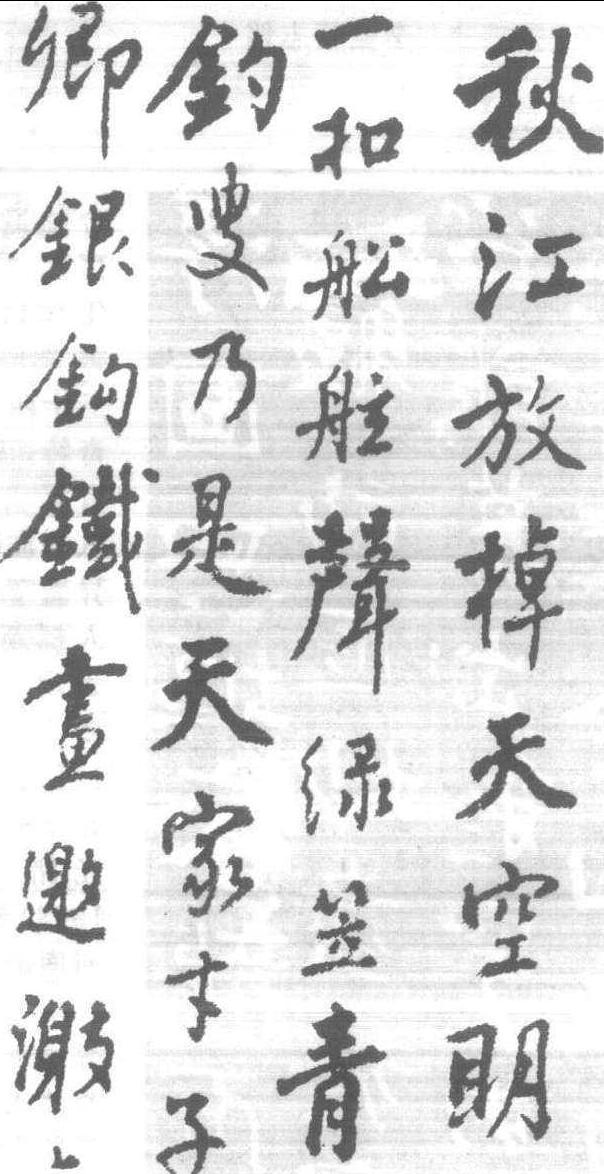 秋江放棹天空明
一扣舩舷聲緑笠青
釣叟乃是天家才子
卿銀鈎鐵畫邀激